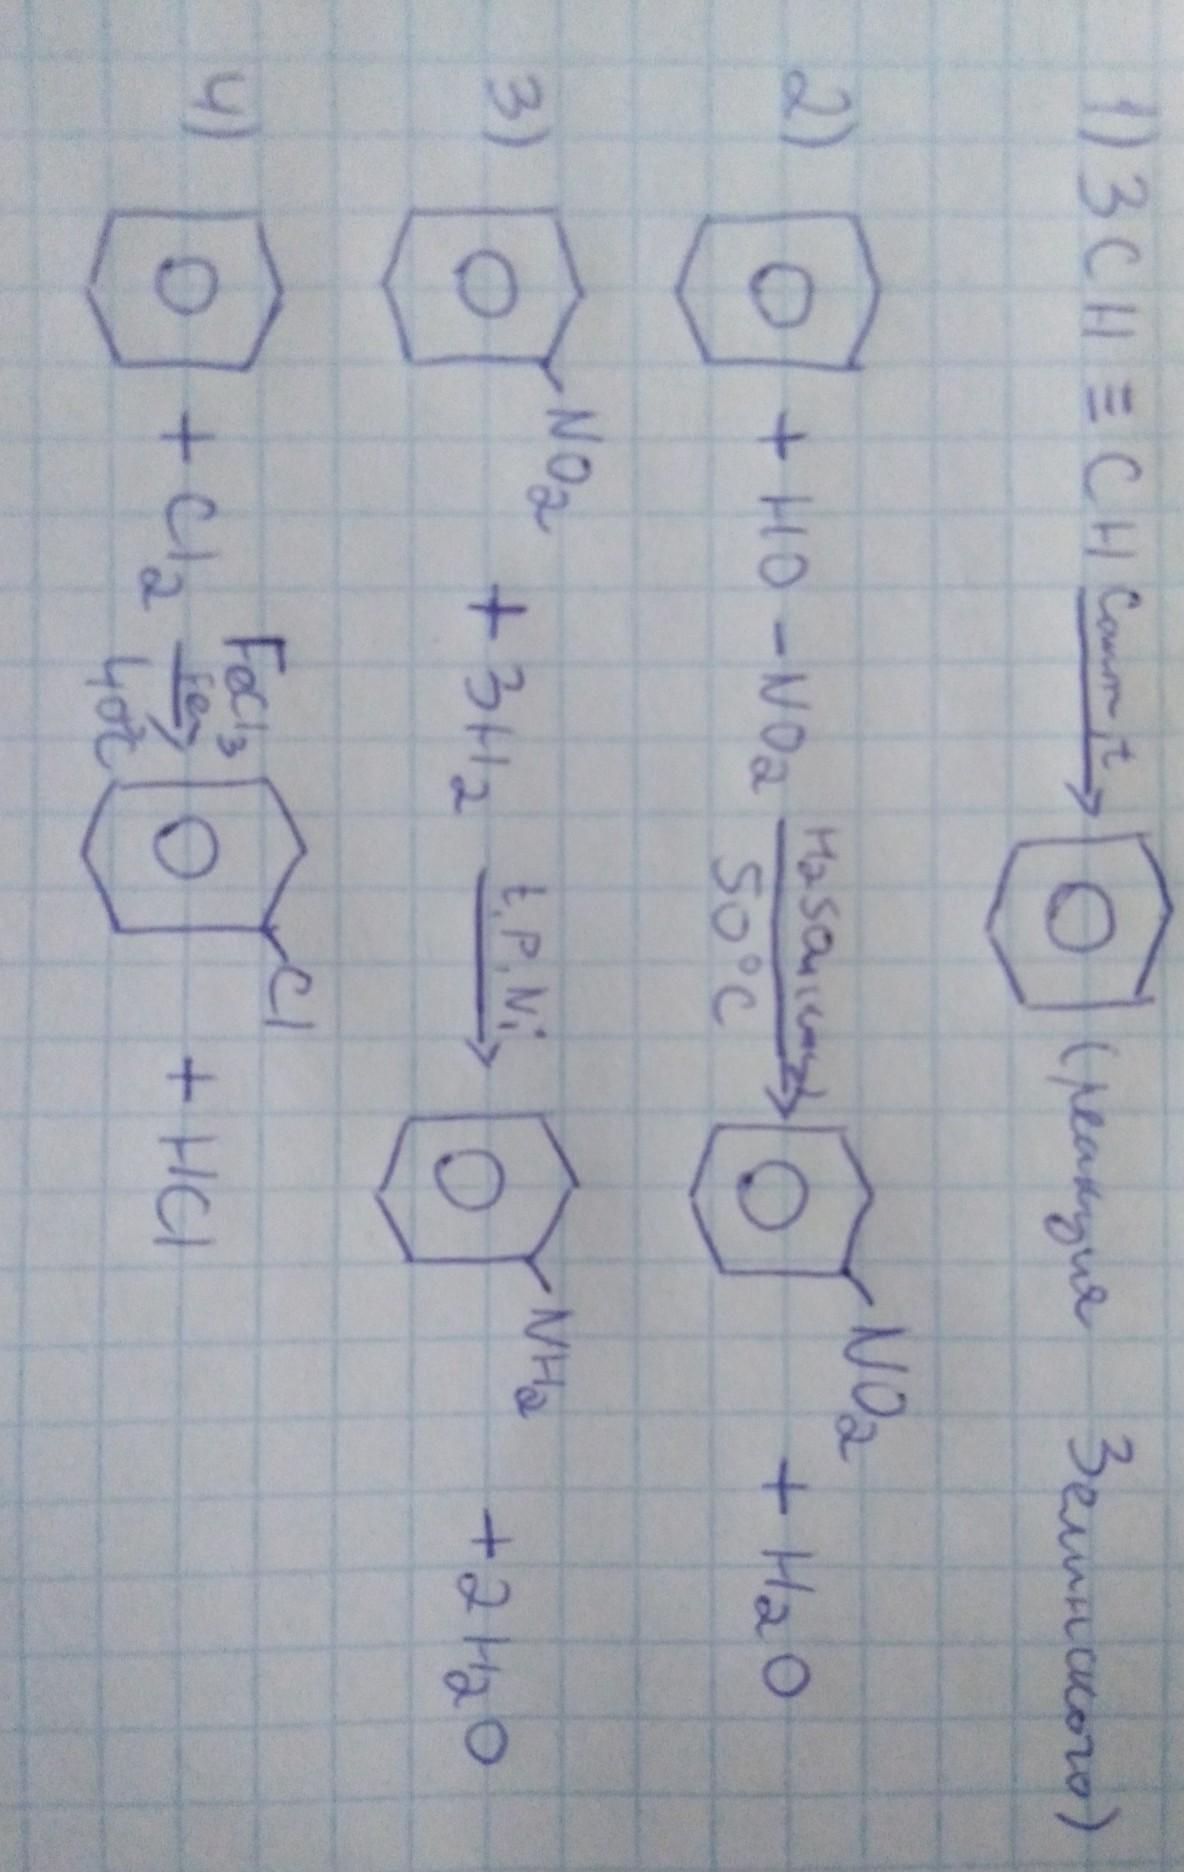 1) 3CH ≡ CH Cакт, t → (реакция Зелинского)
2) + HO - NO2 H2SO4(конц) 50°C → NO2 + H2O
3) NO2 + 3H2 t, P, Ni → NH2 + 2H2O
4) + Cl2 FeCl3 40°C → Cl + HCl